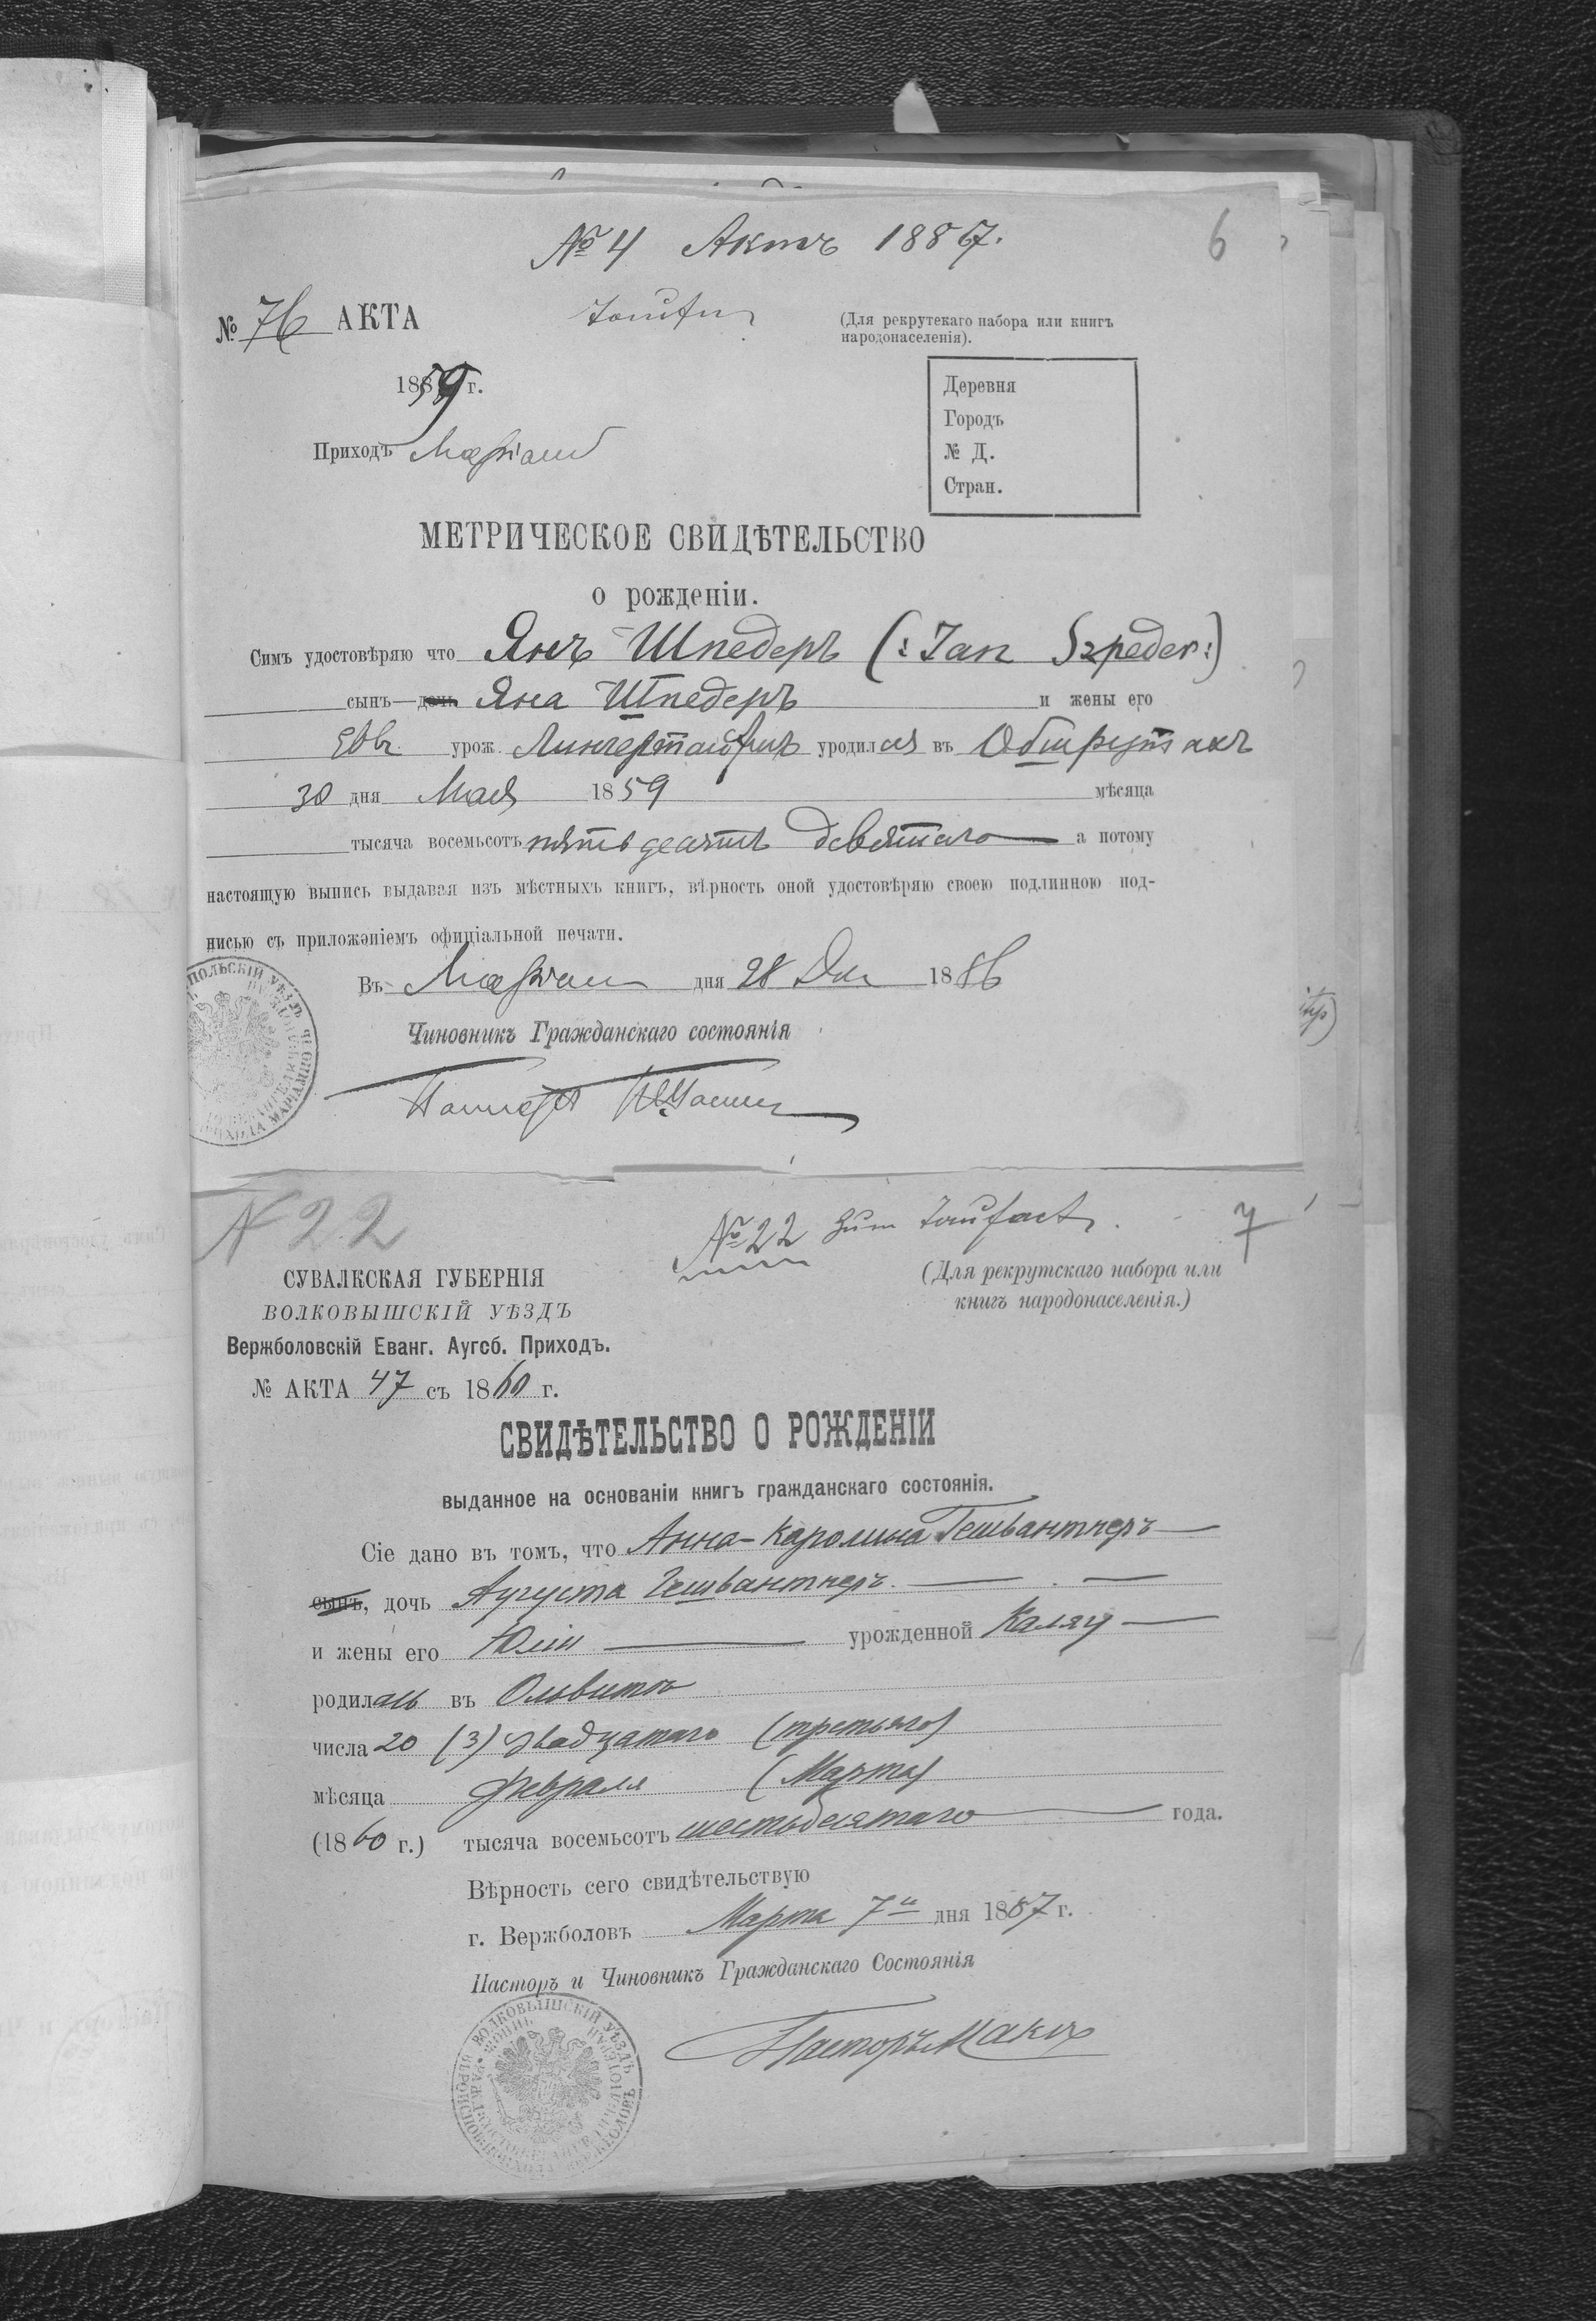 № 4 Актъ 1887.
6
№ 76 АКТА
(Для рекрутскаго набора или книгъ
народонаселенія).
1859 г.
Деревня
Городъ
№ Д.
Стран.
Приходъ
МЕТРИЧЕСКОЕ СВИДѢТЕЛЬСТВО
о рожденіи.
Симъ удостовѣряю что Янъ Шпедеръ (: Jan Szpeder :)
сынъ—дочь Яна Шпедеръ и жены его
Эвы урож. уродился въ
30 дня Мая 1859 мѣсяца
тысяча восемьсотъ пятьдесятъ девятаго а потому
настоящую выпись выдавая изъ мѣстныхъ книгъ, вѣрность оной удостовѣряю своею подлинною под-
писью съ приложэніемъ офиціальной печати.
Въ дня 28 Дек 1886
Чиновникъ Гражданскаго состоянія
N 22
№ 22 zum Taufact
7
СУВАЛКСКАЯ ГУБЕРНІЯ
ВОЛКОВЫШСКІЙ УѢЗДЪ
(Для рекрутскаго набора или
книгъ народонаселенія.)
Вержболовскій Еванг. Аугсб. Приходъ.
№ АКТА 47 съ 1860 г.
СВИДѢТЕЛЬСТВО О РОЖДЕНІИ
выданное на основаніи книгъ гражданскаго состоянія.
Сіе дано въ томъ, что Анна-Каролина Гешвантнеръ
сынъ, дочь Августа Гешвантнеръ
и жены его Юліи урожденной Каляу
родилась въ Ольвитѣ
числа 20 (3) двадцатаго (третьяго)
мѣсяца Февраля (Марта)
(1860 г.) тысяча восемьсотъ шестьдесятаго года.
Вѣрность сего свидѣтельствую
г. Вержболовъ Марта 7 дня 1887 г.
Пасторъ и Чиновникъ Гражданскаго Состоянія
Пасторъ